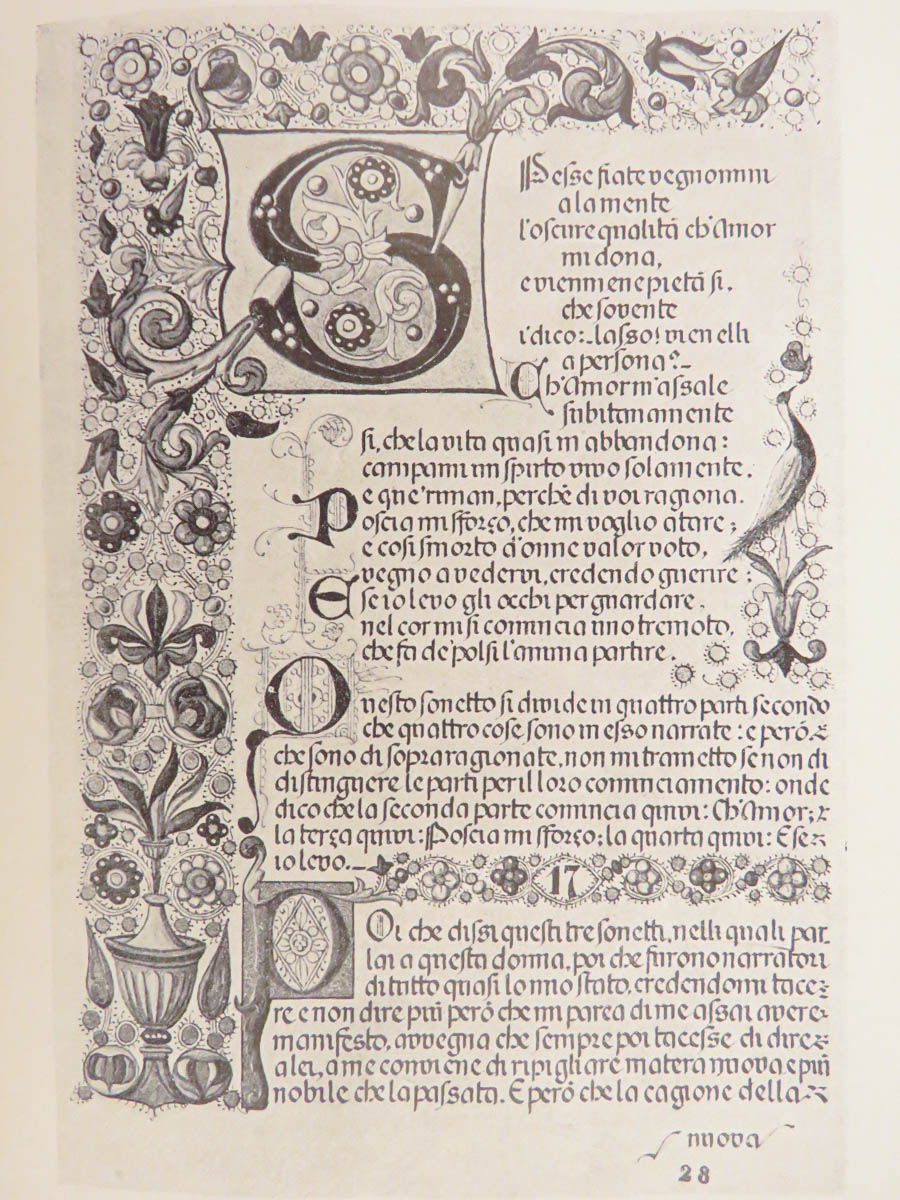 Spesse fiate vegnonmi
a la mente
l'oscure qualità ch'Amor
mi dona,
e vienmene pietà sì,
che sovente
i' dico: Lasso! vien elli
a persona?
Ch'Amor m'assale
subitanamente
sì, che la vita quasi m'abbandona:
campami un spirto vivo solamente,
e que' riman, perchè di voi ragiona.
Poscia mi sforço, che mi voglio atare;
e così smorto d'onne valor voto,
vegno a vedervi, credendo guerire:
E se io levo gli occhi per guardare,
nel cor mi si comincia uno tremoto,
che fa de' polsi l'anima partire.
Questo sonetto si divide in quattro parti secondo
che quattro cose sono in esso narrate: e però
che sono di sopra ragionate, non mi trametto se non di
distinguere le parti per il loro cominciamento: onde
dico che la seconda parte comincia quivi: Ch'Amor; e
la terça quivi: Poscia mi sforço; la quarta quivi: E se
io levo.
17
Poi che dissi questi tre sonetti, nelli quali par
lai a questa donna, poi che furono narratori
di tutto quasi lo mio stato, credendomi tace
re e non dire più però che mi parea di me assai avere
manifesto, avvegna che sempre poi tacesse di dire
a lei, a me conviene di ripigliare matera nuova e più
nobile che la passata. E però che la cagione della
nuova
28